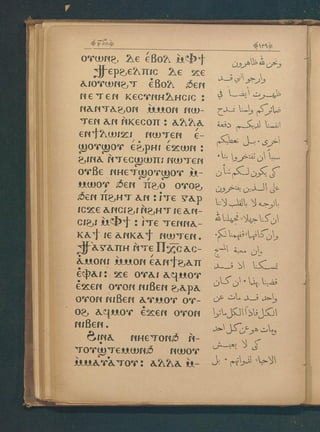 ١٤٦
ⲟⲩⲱⲛϩ ⲇⲉ ⲉ̀ⲃⲟⲗ ⲙ̀Ⲫϯ
Ϯⲉⲣϩⲉⲗⲡⲓⲥ ⲇⲉ ϫⲉ
ⲁⲓⲟⲩⲱⲛϩ,ⲧ ⲉ̀ⲃⲟⲗ ϧⲉⲛ
ⲛⲉⲧⲉⲛ ⲕⲉⲥⲩⲛⲏⲇⲏⲥⲓⲥ :
ⲛⲁⲛⲧⲁϩⲟⲛ ⲙ̀ⲙⲟⲛ ⲛⲱ-
ⲧⲉⲛ ⲁⲛ ⲛ̀ⲕⲉⲥⲟⲡ : ⲁⲗⲗⲁ
ⲉⲛϯⲗⲱⲓϫⲓ ⲛⲱⲧⲉⲛ ⲉ̀-
ϣⲟⲩϣⲟⲩ ⲉ̀ϩⲣⲏⲓ ⲉ̀ϫⲱⲛ :
ϩⲓⲛⲁ ⲛ̀ⲧⲉⲥϣⲱⲡⲓ ⲛⲱⲧⲉⲛ
ⲟⲩⲃⲉ ⲛⲏⲉⲧϣⲟⲩϣⲟⲩ ⲙ̀-
ⲙⲱⲟⲩ ϧⲉⲛ ⲡ̀ϩⲟ ⲟⲩⲟϩ
ϧⲉⲛ ⲡ̀ϩⲏⲧ ⲁⲛ : ⲓⲧⲉ ⲅⲁⲣ
ⲓⲥϫⲉ ⲁⲛⲥⲓϩⲓ ⲛ̀ϩⲏⲧ ⲓⲉ ⲁⲛ-
ⲥⲓϩⲓ ⲙ̀Ⲫϯ : ⲓⲧⲉ ⲧⲉⲛⲛⲁ-
ⲕⲁϯ ⲓⲉ ⲁⲛⲕⲁϯ ⲛⲱⲧⲉⲛ.
Ϯⲁⲅⲁⲡⲏ ⲛ̀ⲧⲉ Ⲡⲭ̅ⲥ̅ ⲁⲥ-
ⲁ̀ⲙⲟⲛⲓ ⲙ̀ⲙⲟⲛ ⲉⲁⲛϯϩⲁⲡ
ⲉ̀ⲫⲁⲓ: ϫⲉ ⲟⲩⲁⲓ ⲁϥⲙⲟⲩ
ⲉ̀ϫⲉⲛ ⲟⲩⲟⲛ ⲛⲓⲃⲉⲛ ϩⲁⲣⲁ
ⲟⲩⲟⲛ ⲛⲓⲃⲉⲛ ⲁⲩⲙⲟⲩ ⲟⲩ-
ⲟϩ ⲁϥⲙⲟⲩ ⲉ̀ϫⲉⲛ ⲟⲩⲟⲛ
ⲛⲓⲃⲉⲛ.
Ϩⲓⲛⲁ ⲛⲏⲉⲧⲟⲛϧ ⲛ̀-
ⲧⲟⲩϣ̀ⲧⲉⲙⲱⲛϧ ⲛⲱⲟⲩ
ⲙ̀ⲙⲁⲩⲁⲧⲟⲩ: ⲁⲗⲗⲁ ⲙ̀-
ونحن لله ظاهرون
وارجو انى قد
ظهرت ايضا فى
ضمائركم ولسنا نمدح
انفسنا لديكم دفعة
اخرى . بل نعطيكم
سبباً ان تفتخروا بنا .
كى يكون لكم شأن
على الذين يفتخرون
بالوجه لا بالقلب لاننا
ان كنا جهلاء جهلنا لله
وان كنا فهماء فهمنا لكم
وان محبة المسيح
تمسكنا اذ قد
قضينا بهذا . ان كان
واحد قد مات عن
الكل فاذاً الكل ماتوا
ومات هو عن كل احد
كى لا يعيش
الاحياء لذواتهم . بل